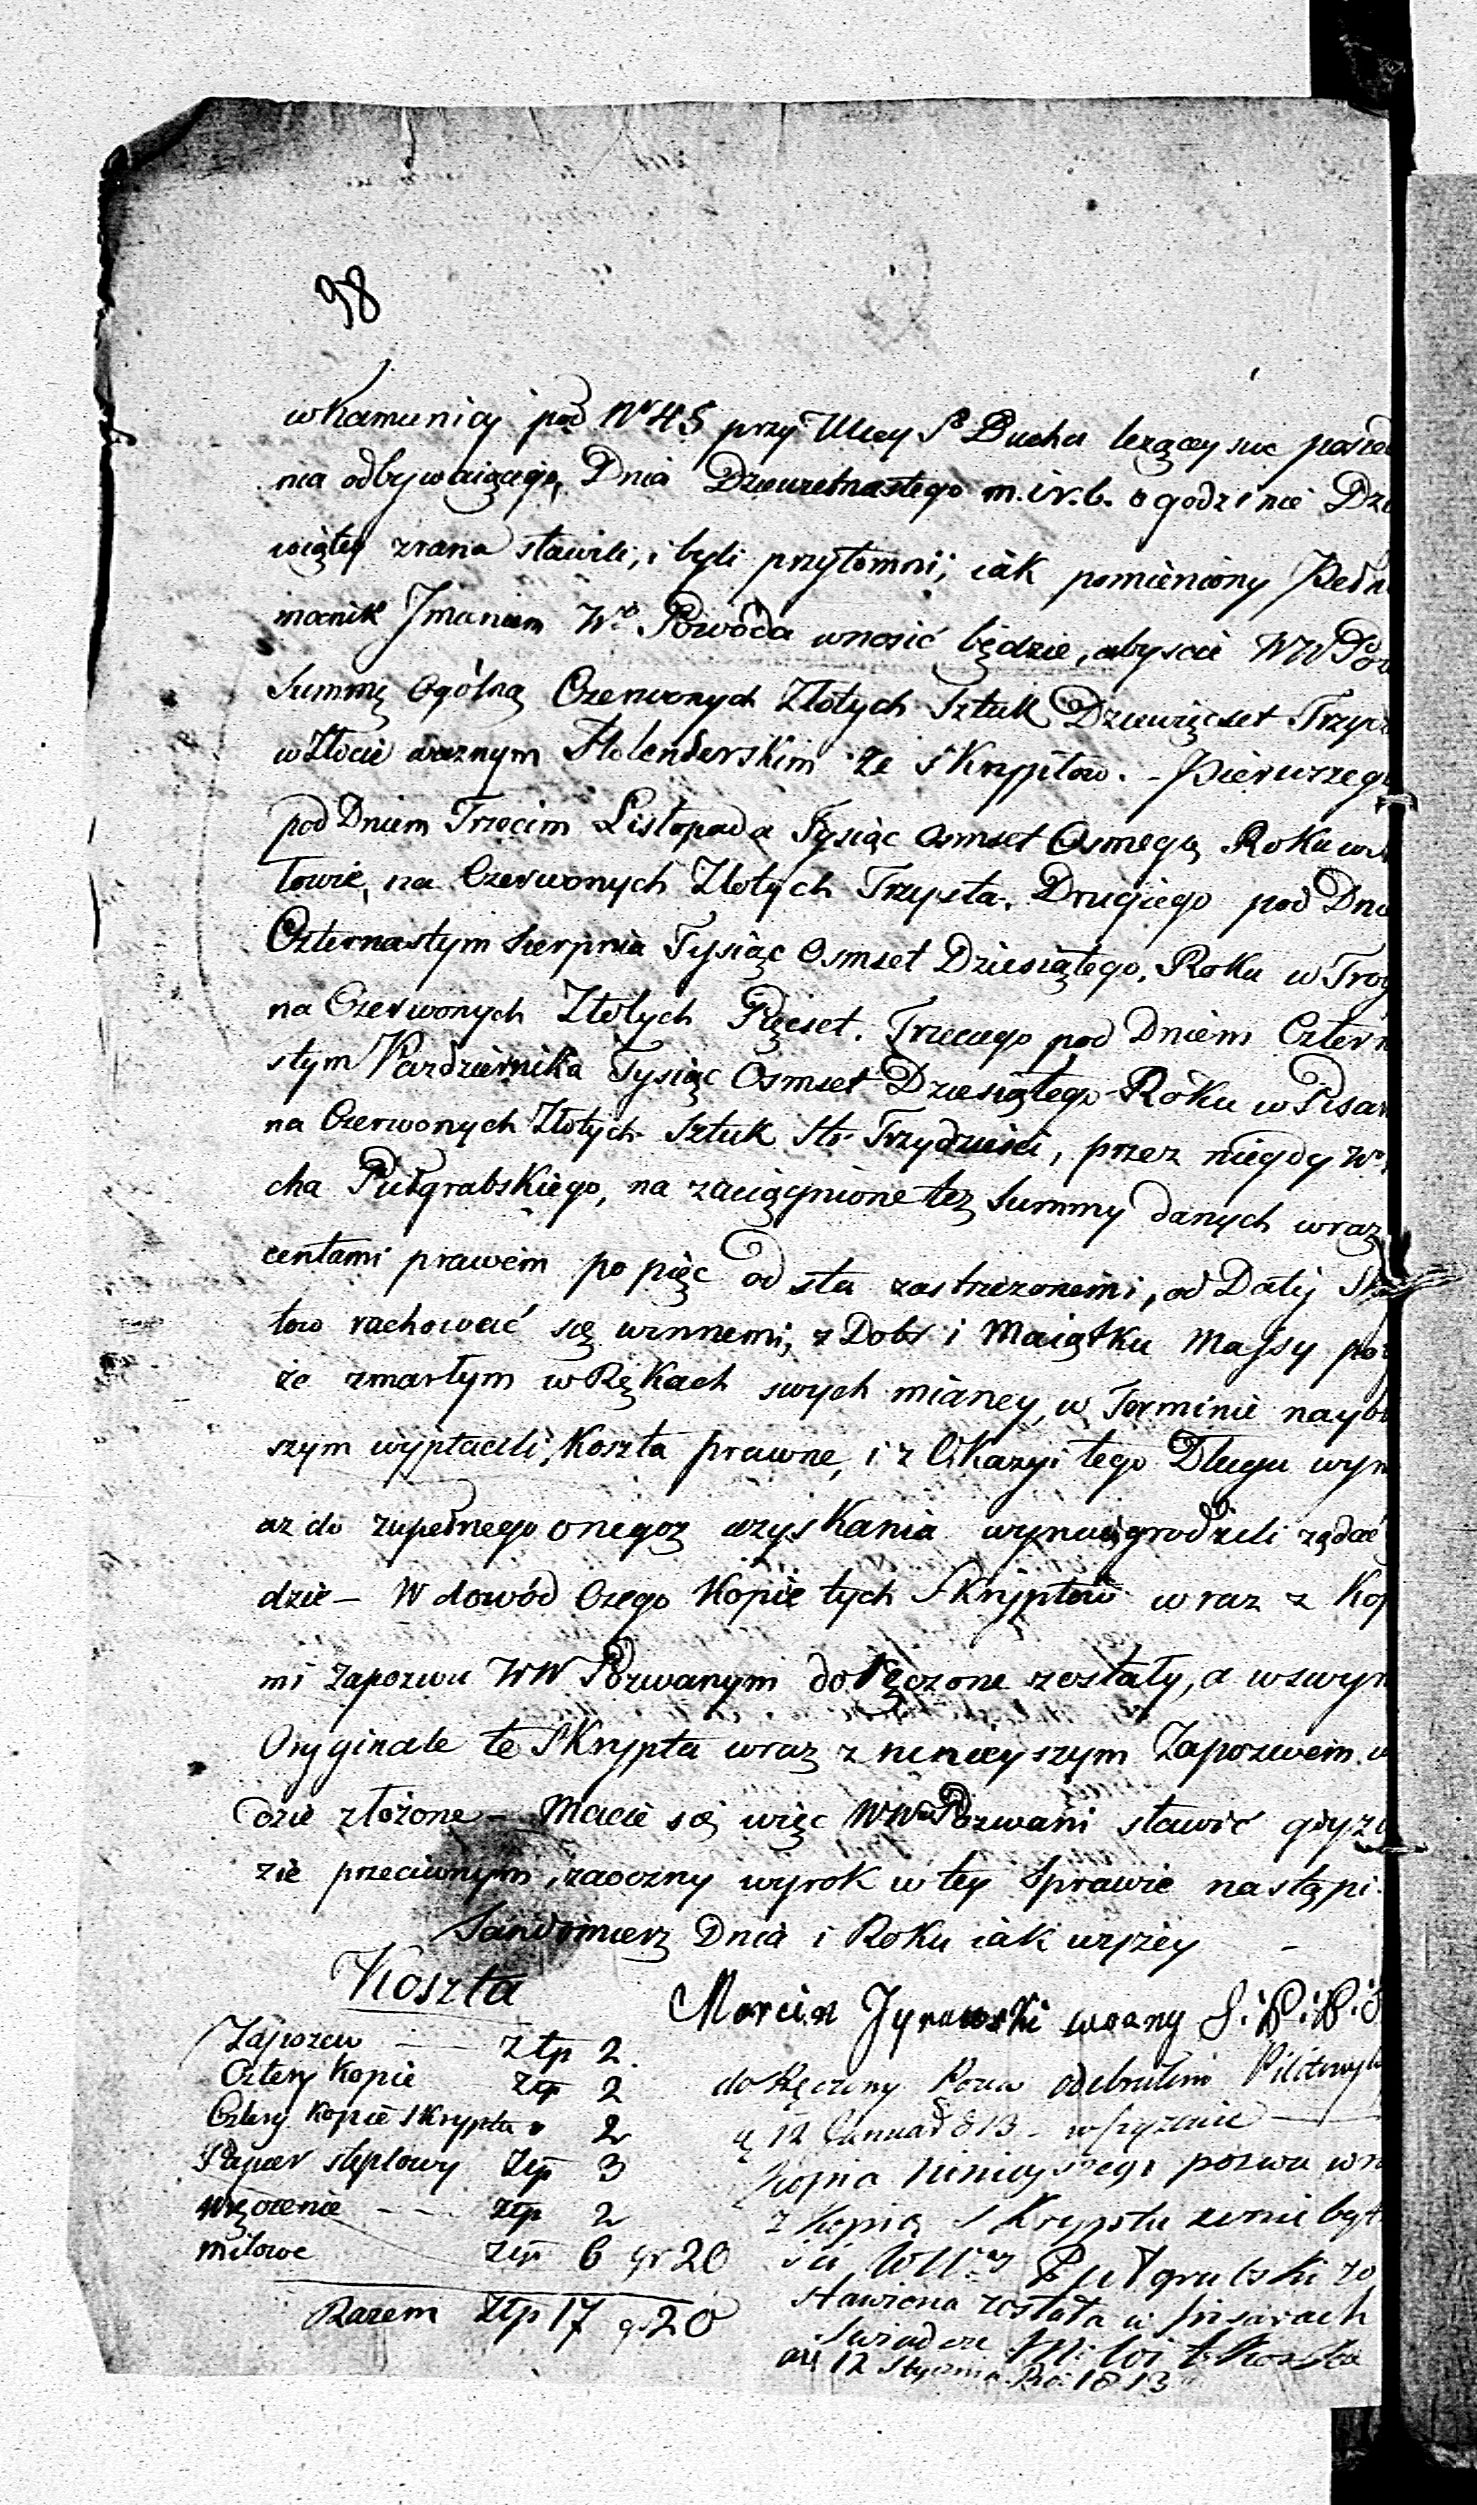 98
w Kamienicy pod Nr 45 przy Ulicy S° Ducha leżącey swe posied
nia odbywaiącego, Dnia Dziewietnastego m. i r. b. o godzinie Dzi
wiątey zrana stawili, i byli przytomni, iak pomieniony Pełn
mocnik Imieniem W° Powoda wnosić będzie, abyscie WW Poz
Summę Ogólną Czerwonych Złotych Sztuk Dziewięcset Trzydz
w Złocie ważnym Hollenderskim ze Skryptow. - Pierwszego
pod Dniem Trzecim Listopada Tysiąc Osmset Osmego Roku w
towie, na Czerwonych Złotych Trzysta. Drugiego pod Dni
Czternastym Sierpnia Tysiąc Osmset Dziesiątego, Roku w Troy
na Czerwonych Złotych Pięcset. Trzeciego pod Dniem Cztern
stym Pazdziernika Tysiąc Osmset Dziesiątego Roku w Pisar
na Czerwonych Złotych Sztuk Sto Trzydzieści, przez niegdy W°
cha Pułgrabskiego, na zaciągnione też Summy danych wraz
centami prawem po pięc od sta zastrzeżonemi, od Daty Sk
tow rachować się winnemi, z Dobr i Maiątku Massy po
że zmarłym w Rękach swych mianey, w Terminie naybl
szym wypłacili, Koszta prawne, i z Okazyi tego Długu wyn
aż do zupełnego onegoż uzyskania wynadgrodzili żądać
dzie - W dowód Czego Kopie tych Skryptow wraz z Kop
mi Zapozwu WW Pozwanym doręczone zostały, a w swym
Oryginale te Skrypta wraz z ninieyszym Zapozwem w
dzie złożone - Macie się więc WW Pozwani stawić gdyż w
zie przeciwnym, zaoczny wyrok w tey Sprawie nastąpi.
Sandomierz Dnia i Roku iak wyżey -
Koszta
Marcin Zyrawski woźny S: P: P: S
Zapozew - Złp 2.
Cztery Kopie Złp 2
Cztery Kopie Skrypta 2
Papier stęplowy Złp 3
Wręczenie - - Złp 2
milowe Złp 6 gr 20
Razem Złp 17 gr 20
doRęczony Pozew odebrałem
12 Januar 813 -
Kopia ninieyszego pozwu wr
z Kopią Skryptu
Pułgrabski zo
stawiona została w Pisarach
Swiadcze
12 Stycznia Ro: 1813